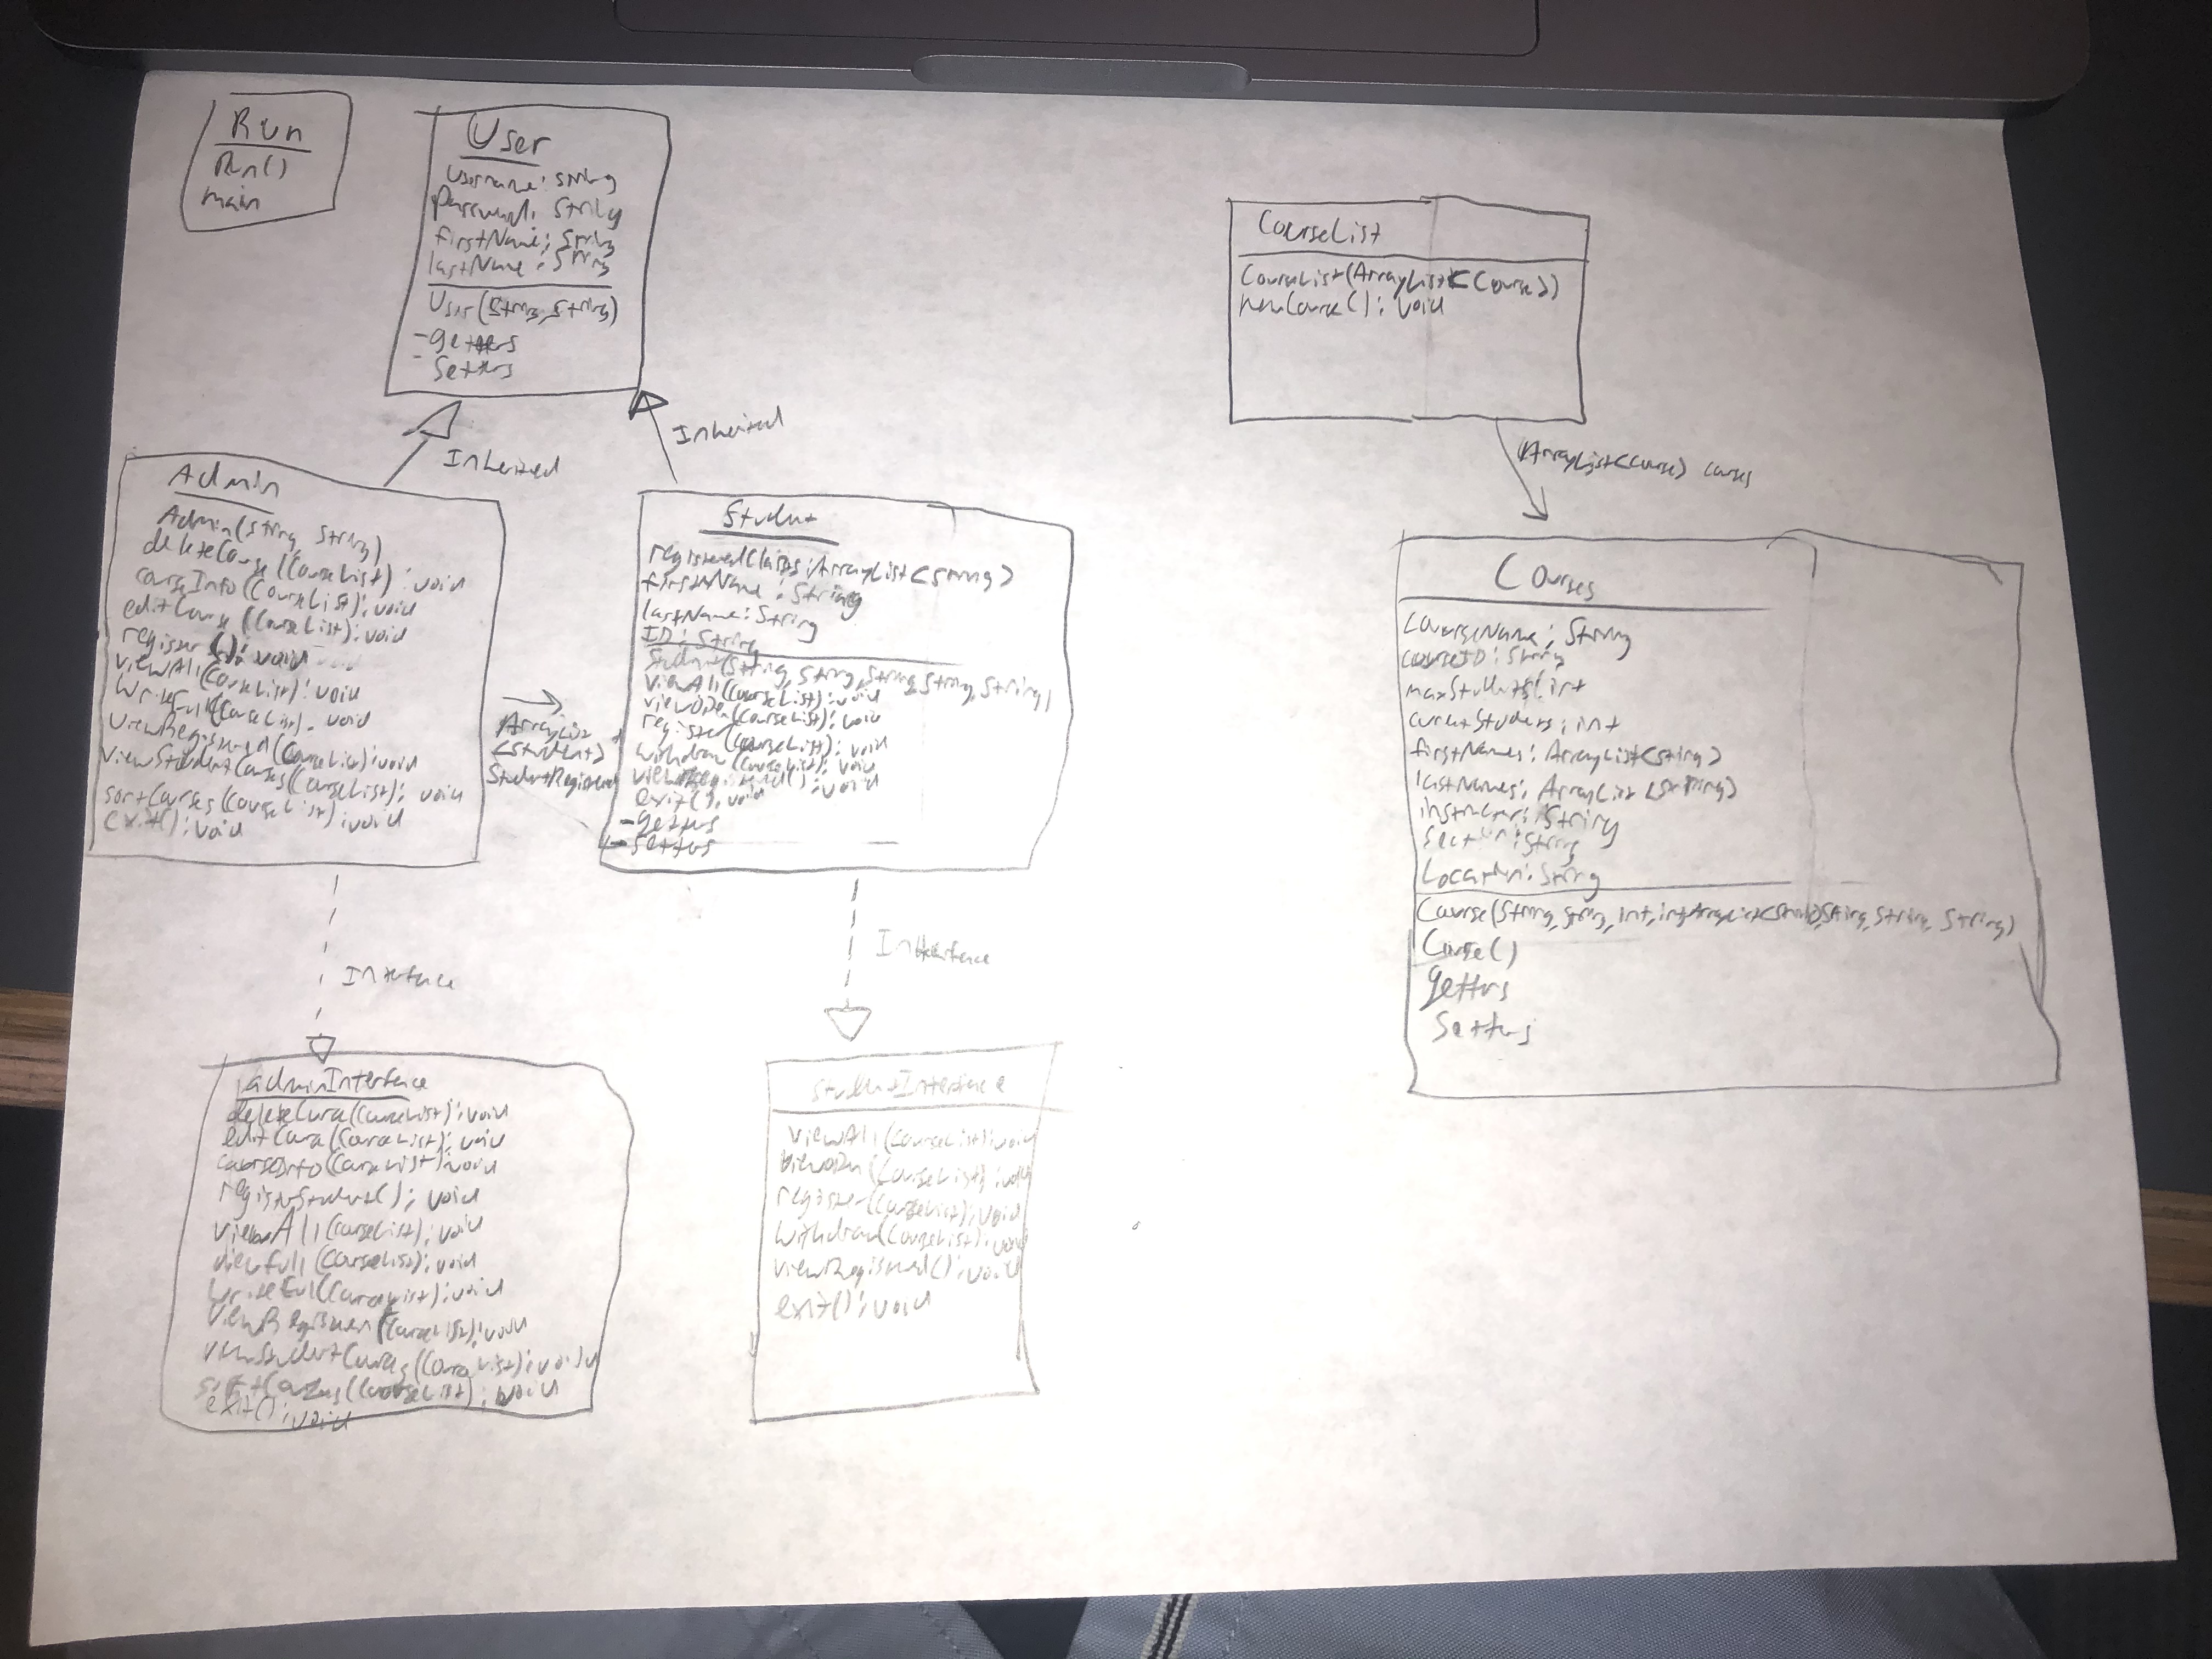 Run
Run()
main
User
Username: String
Password: String
firstName: String
lastName: String
User(String, String)
- getters
Setters
Inherited
Inherited
Admin
Admin(String, String)
delete(Course(CourseList): void
editCourse(CourseList): void
register(): void
viewAll(CourseList): void
viewRegistered(CourseList): void
viewStudentCourses(CourseList): void
sortCourses(CourseList): void
exit(): void
ArrayList
<Student>
Student
registered(lass: ArrayList<String>
firstName: String
lastName: String
ID: String
Student(String, String, String, String, String)
viewAll(CourseList): void
register(CourseList): void
withdraw(CourseList): void
exit(): void
- getters
- setters
Interface
Interface
adminInterface
deleteCourse(CourseList): void
editCourse(CourseList): void
courseInfo(CourseList): void
registerStudent(): void
viewAll(CourseList): void
viewFull(CourseList): void
writeFull(CourseList): void
viewStudentCourses(CourseList): void
sortCourses(CourseList): void
exit(): void
studentInterface
viewAll(CourseList): void
register(CourseList): void
withdraw(CourseList): void
viewRegistered(): void
exit(): void
CourseList
CourseList(ArrayList<Course>)
newCourse(): void
ArrayList<Course> courses
Courses
CourseName: String
courseID: String
maxStudents: int
currentStudents: int
firstNames: ArrayList<String>
lastNames: ArrayList<String>
instructor: String
section: String
Location: String
Course(String, String, int, int, ArrayList<String>, String, String, String)
Course()
getters
Setters